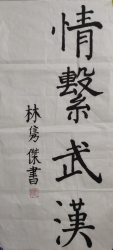 情繫武漢
林雋傑書